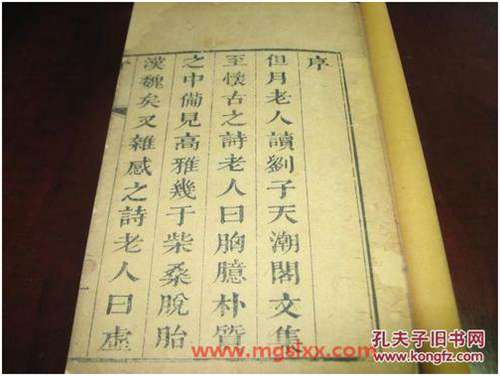 序
但月老人讀劉子天潮閣文集
至懷古之詩老人曰胸臆朴質
之中備見高雅幾于柴桑脫胎
漢魏矣又雜感之詩老人曰虛
www.mgslxx.com
孔夫子旧书网
www.kongfz.com